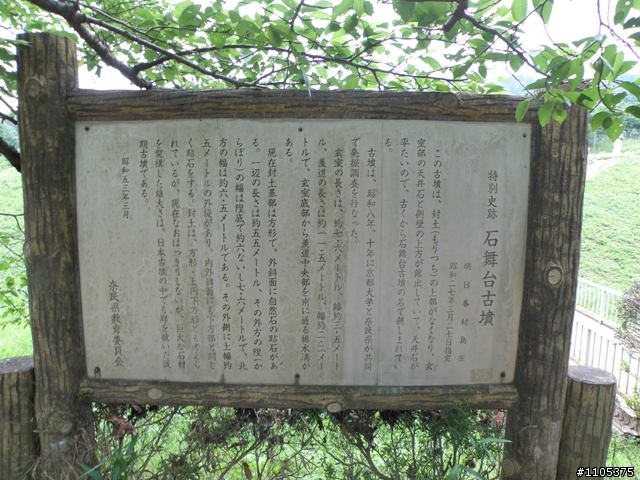 特別史跡　石舞台古墳
明日香村島庄
昭和二七年三月二七日指定
この古墳は、封土(もりつち)の上部がなくなり、玄
室部の天井石と側壁の上方が露出していて、天井石が
平たいので、古くから石舞台古墳の名で親しまれてい
る。
古墳は、昭和八年、十年に京都大学と奈良県が共同
で発掘調査を行なった。
玄室の長さは、約七・六メートル、幅約三・五メート
ル、羨道の長さは約一一・五メートル、幅約二・二メー
トルで、玄室底部から羨道中央部を南に通る排水溝が
ある。
現在封土墓部は方形で、外斜面に自然石の貼石があ
る。一辺の長さは約五五メートル、その外方の隍(か
らぼり)の幅は隍底で約六ないし七・六メートルで、北
方の幅は約六・五メートルである。その外側に上幅約
五メートルの外堤があり、内外斜面にも下方部と同じ
く貼石をする。封土は、方形、上円下方形とも考えら
れているが、現在なおはっきりしないが、巨大な石材
を架構した雄大さは、日本古墳の中でも群を抜いた後
期古墳である。
昭和五三年三月
奈良県教育委員会
#1105375